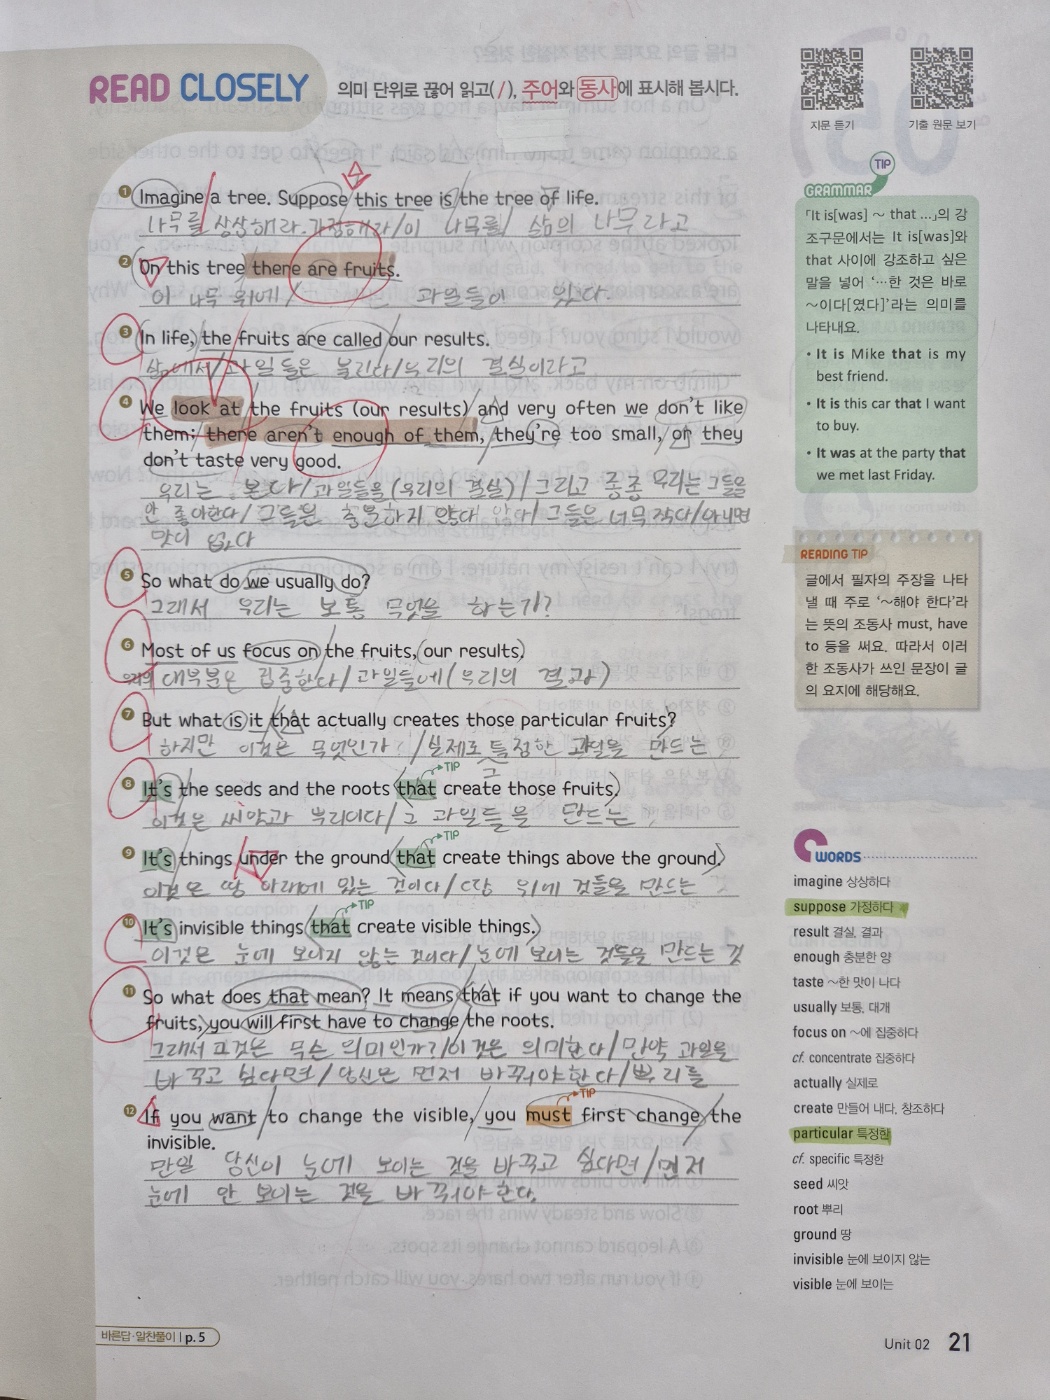 READ CLOSELY
의미 단위로 끊어 읽고(/), 주어와 동사에 표시해 봅시다.
지문 듣기
기출 원문 보기
❶ Imagine a tree. Suppose this tree is the tree of life.
나무를 상상해라. 가정해라/이 나무를/ 삶의 나무라고
❷ On this tree there are fruits.
이 나무 위에/ 과일들이 있다.
❸ In life, the fruits are called our results.
삶에서/과일들은 불린다/우리의 결실이라고
❹ We look at the fruits (our results) and very often we don't like
them; there aren't enough of them, they're too small, or they
don't taste very good.
우리는 본다/과일들을(우리의 결실)/그리고 종종 우리는 그들을
안 좋아한다/ 그들은 충분하지 않다/그들은 너무 작다/아니면
맛이 없다
❺ So what do we usually do?
그래서 우리는 보통 무엇을 하는가?
❻ Most of us focus on the fruits, (our results)
우리의 대부분은 집중한다/과일들에(우리의 결과)
❼ But what is it that actually creates those particular fruits?
하지만 이것은 무엇인가/실제로 특정한 과일을 만드는
그
❽ It's the seeds and the roots that create those fruits.
TIP
이것은 씨앗과 뿌리이다/그 과일들을 만드는
❾ It's things under the ground that create things above the ground.
TIP
이것은 땅 아래에 있는 것이다/땅 위에 것들을 만드는
❿ It's invisible things that create visible things.
TIP
이것은 눈에 보이지 않는 것이다/눈에 보이는 것들을 만드는 것
⓫ So what does that mean? It means that if you want to change the
fruits, you will first have to change the roots.
그래서 그것은 무슨 의미인가?/이것은 의미한다/만약 과일을
바꾸고 싶다면/당신은 먼저 바꿔야한다/뿌리를
⓬ If you want to change the visible, you must first change the
TIP
invisible.
만일 당신이 눈에 보이는 것을 바꾸고 싶다면/먼저
눈에 안 보이는 것을 바꿔야한다.
TIP
GRAMMAR
「It is[was] ~ that ...」의 강
조구문에서는 It is[was]와
that 사이에 강조하고 싶은
말을 넣어 '…한 것은 바로
~이다[였다]'라는 의미를
나타내요.
• It is Mike that is my
best friend.
• It is this car that I want
to buy.
• It was at the party that
we met last Friday.
READING TIP
글에서 필자의 주장을 나타
낼 때 주로 '~해야 한다'라
는 뜻의 조동사 must, have
to 등을 써요. 따라서 이러
한 조동사가 쓰인 문장이 글
의 요지에 해당해요.
WORDS
imagine 상상하다
suppose 가정하다
result 결실, 결과
enough 충분한 양
taste ~한 맛이 나다
usually 보통, 대개
focus on ~에 집중하다
cf. concentrate 집중하다
actually 실제로
create 만들어 내다, 창조하다
particular 특정한
cf. specific 특정한
seed 씨앗
root 뿌리
ground 땅
invisible 눈에 보이지 않는
visible 눈에 보이는
바른답·알찬풀이 | p. 5
Unit 02 21